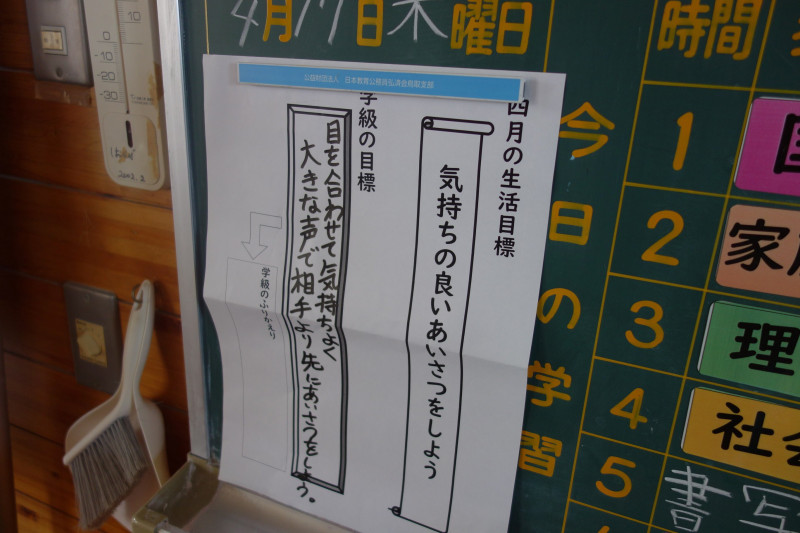 4月17日木曜日
公益財団法人 日本教育公務員弘済会鳥取支部
四月の生活目標
気持ちの良いあいさつをしよう
学級の目標
目を合わせて気持ちよく
大きな声で相手より先にあいさつをしよう。
学級のふりかえり
今日の学習
時間
1
2 家
3 理
4 社会
5 書写
10
0
-10
-20
-30
2002.2